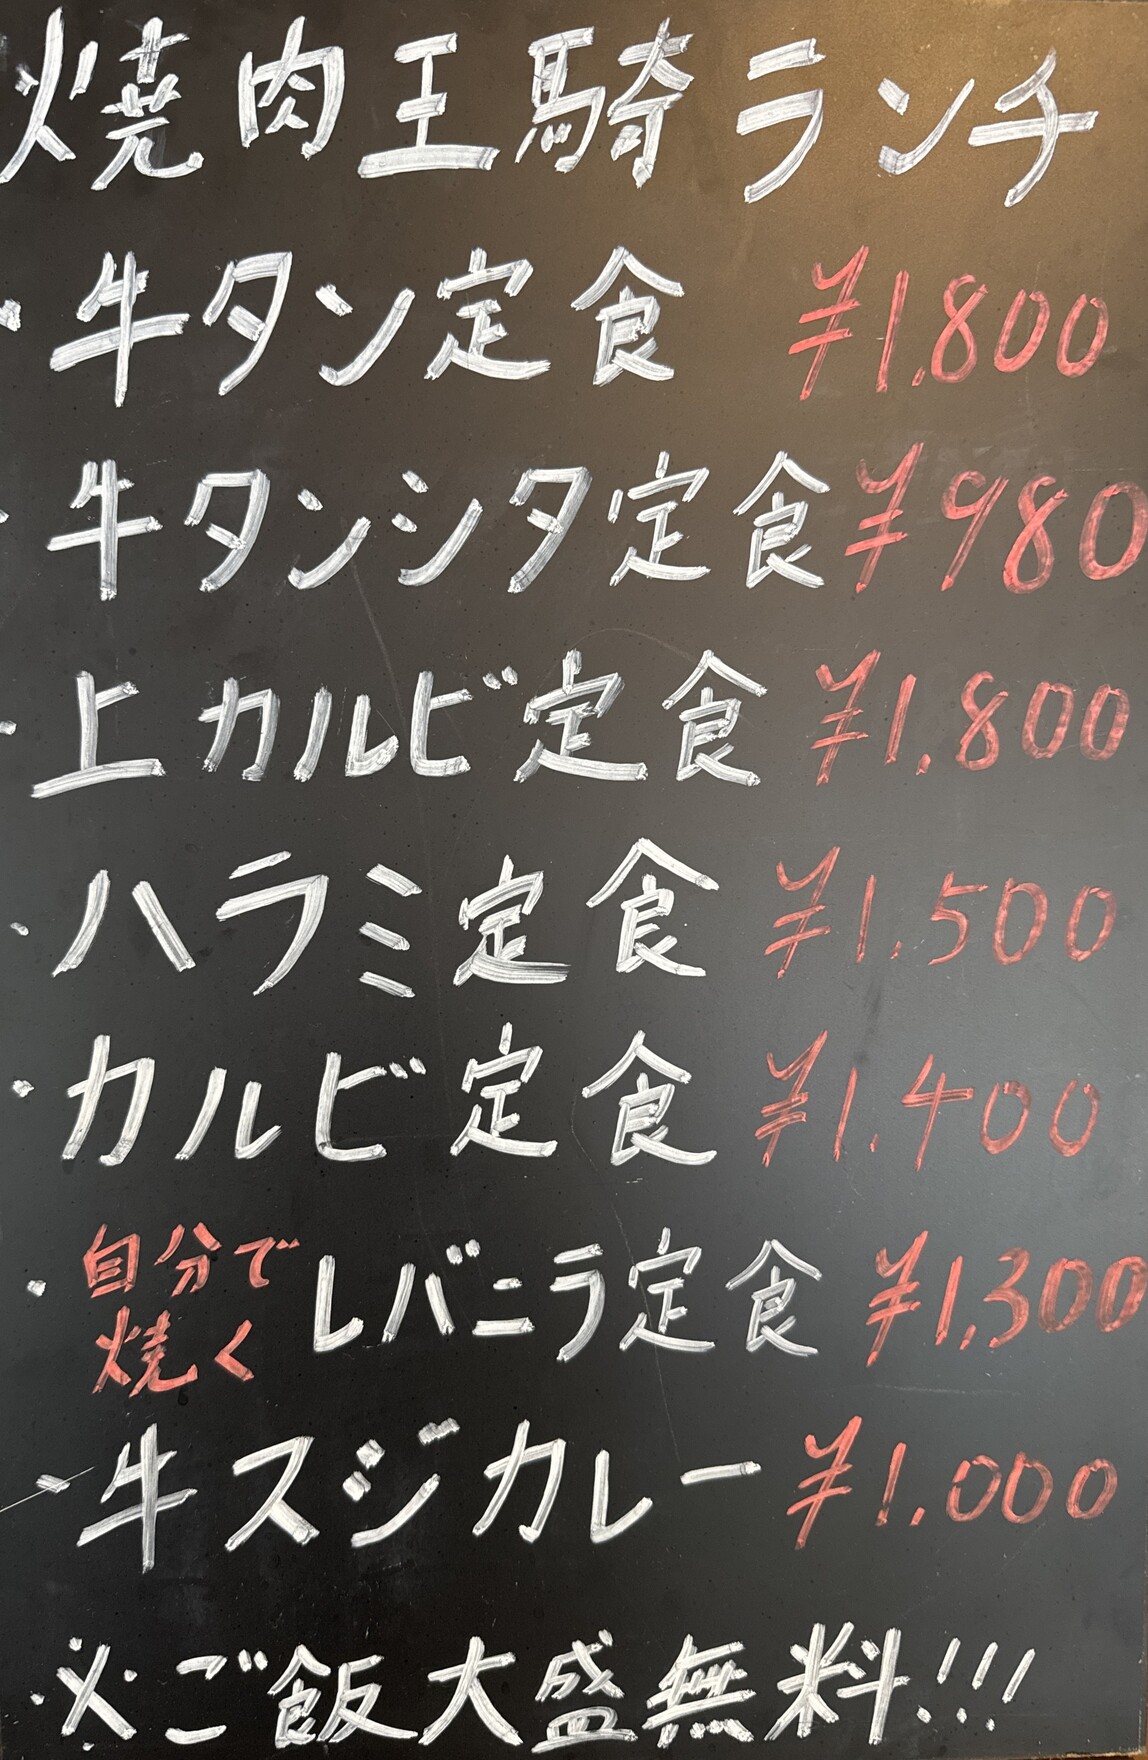 焼肉王騎ランチ
・牛タン定食 ¥1.800
・牛タンシタ定食 ¥980
・上カルビ定食 ¥1.800
・ハラミ定食 ¥1.500
・カルビ定食 ¥1.400
・自分で焼く レバニラ定食 ¥1.300
・牛スジカレー ¥1.000
・※ご飯大盛無料!!!